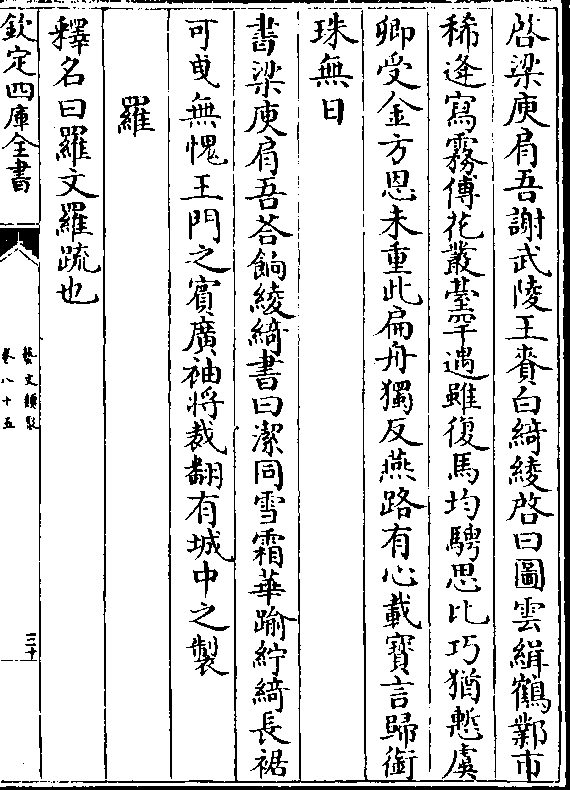 啓梁庾肩吾謝武陵王賚白綺綾啓曰圖雲緝鶴鄴市
稀逢寫霧傅花叢臺罕遇雖復馬均騁思比巧猶慙虞
卿受金方恩未重此扁舟獨反燕路有心載寶言歸銜
珠無日
書梁庾肩吾荅餉綾綺書曰潔同雪霜華踰紵綺長裾
可曳無愧王門之賓廣袖將裁翻有城中之製
羅
釋名曰羅文羅疏也
欽定四庫全書
藝文類聚
卷八十五
三十